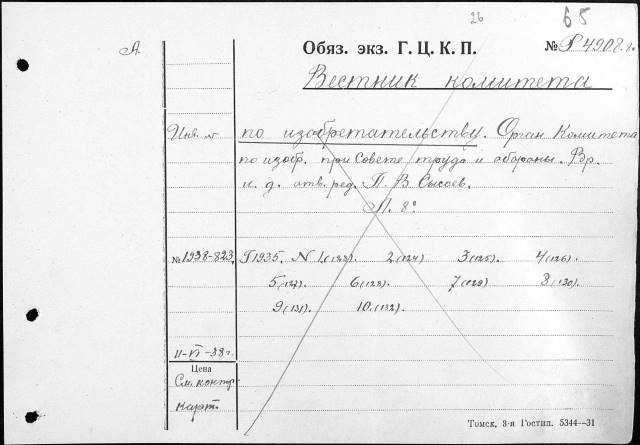 26 65
А. Обяз. экз. Г. Ц. К. П. № Р 4908.г.
Вестник комитета
Инв. № по изобретательству. Орган Комитета
по изоб. при Совете труда и обороны. Вр.
и. д. отв. ред. П. В. Сысоев.
М. 8°
№ 1938-823. Г1935. N 1(123). 2(124) 3(125). 4(126).
5(127). 6(128). 7(129) 8(130).
9(131). 10(132).
11-VI-38г.
Цена
См. контр.
карт.
Томск, 3-я Гостип. 5344—31